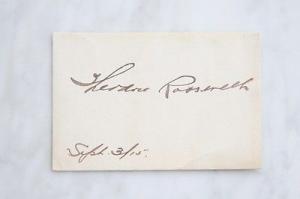 Theodore Roosevelt
Sept. 3/15.